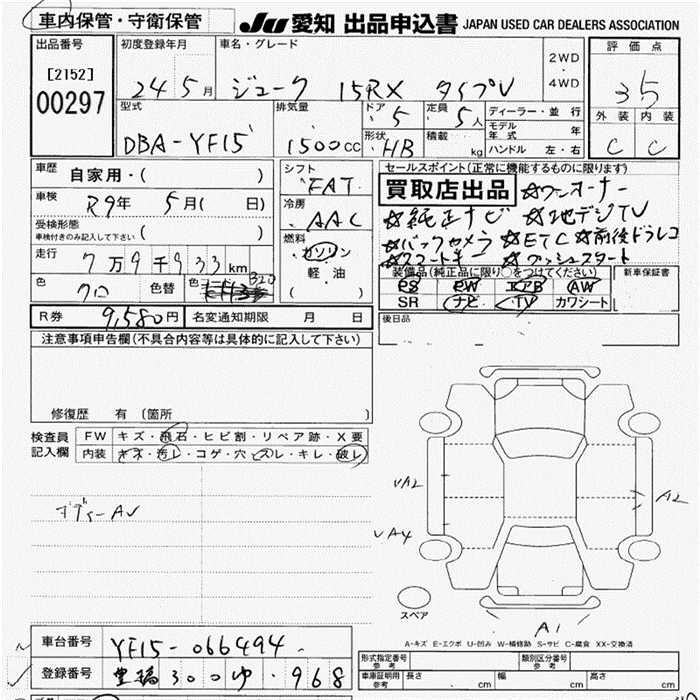 車内保管・守衛保管
JU 愛知 出品申込書 JAPAN USED CAR DEALERS ASSOCIATION
出品番号
[2152]
00297
初度登録年月
24 5月
車名・グレード
ジューク 15RX タイプV
2WD
・
4WD
評価点
3.5
外装 内装
C C
型式
DBA-YF15
排気量
1500cc
ドア 5
定員 5人
形状 HB
積載 kg
ディーラー・並行
モデル年式 年
ハンドル 左・右
車歴 自家用・( )
車検 R9年 5月( 日)
受検形態
車検付きのみ記入して下さい ( )
走行 7万9千933km
色 クロ
色替
B20
シフト FAT
冷房 AAC
燃料
ガソリン
軽油
( )
セールスポイント(正常に機能するものに限ります)
買取店出品 ☆ワンオーナー
☆純正ナビ ☆地デジTV
☆バックカメラ ☆ETC ☆前後ドラレコ
☆スマートキー ☆プッシュスタート
装備品(純正品に限り○をつけてください)
PS PW エアB AW
SR ナビ TV カワシート
新車保証書
後日品
R券 9,580円
名変通知期限 月 日
注意事項申告欄(不具合内容等は具体的に記入して下さい)
修復歴 有 (箇所 )
検査員記入欄
FW キズ・飛石・ヒビ割・リペア跡・X要
内装 キズ・汚レ・コゲ・穴・スレ・キレ・破レ
ボディーAU
UA2
UA4
A2
A1
スペア
A-キズ E-エクボ U-凹み W-補修跡 S-サビ C-腐食 XX-交換済
車台番号 YF15-066494
登録番号 豊橋 300 ゆ・968
形式指定番号
参考
類別区分番号
参考
車庫証明用
参考
長さ cm 幅 cm 高さ cm